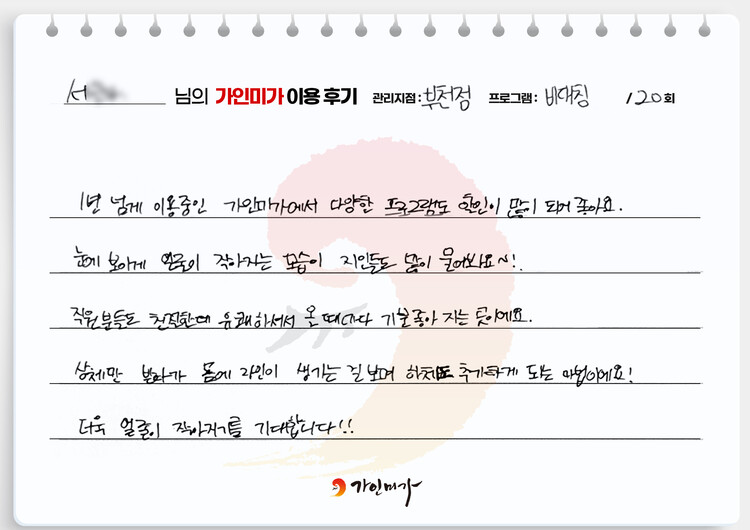 서 님의 가인미가 이용 후기 관리지점: 부천점 프로그램: 비대칭 / 20회
1년 넘게 이용중인 가인미가에서 다양한 프로그램도 할인이 많이 되어 좋아요.
눈에 보이게 얼굴이 작아지는 모습이 지인들도 많이 물어봐요~!
직원분들도 친절한데 유쾌하셔서 올 때마다 기분좋아 지는 곳이에요.
상체만 받다가 몸에 라인이 생기는 걸 보며 하체도 추가하게 되는 마법이에요!
더욱 얼굴이 작아지기를 기대합니다!!
가인미가